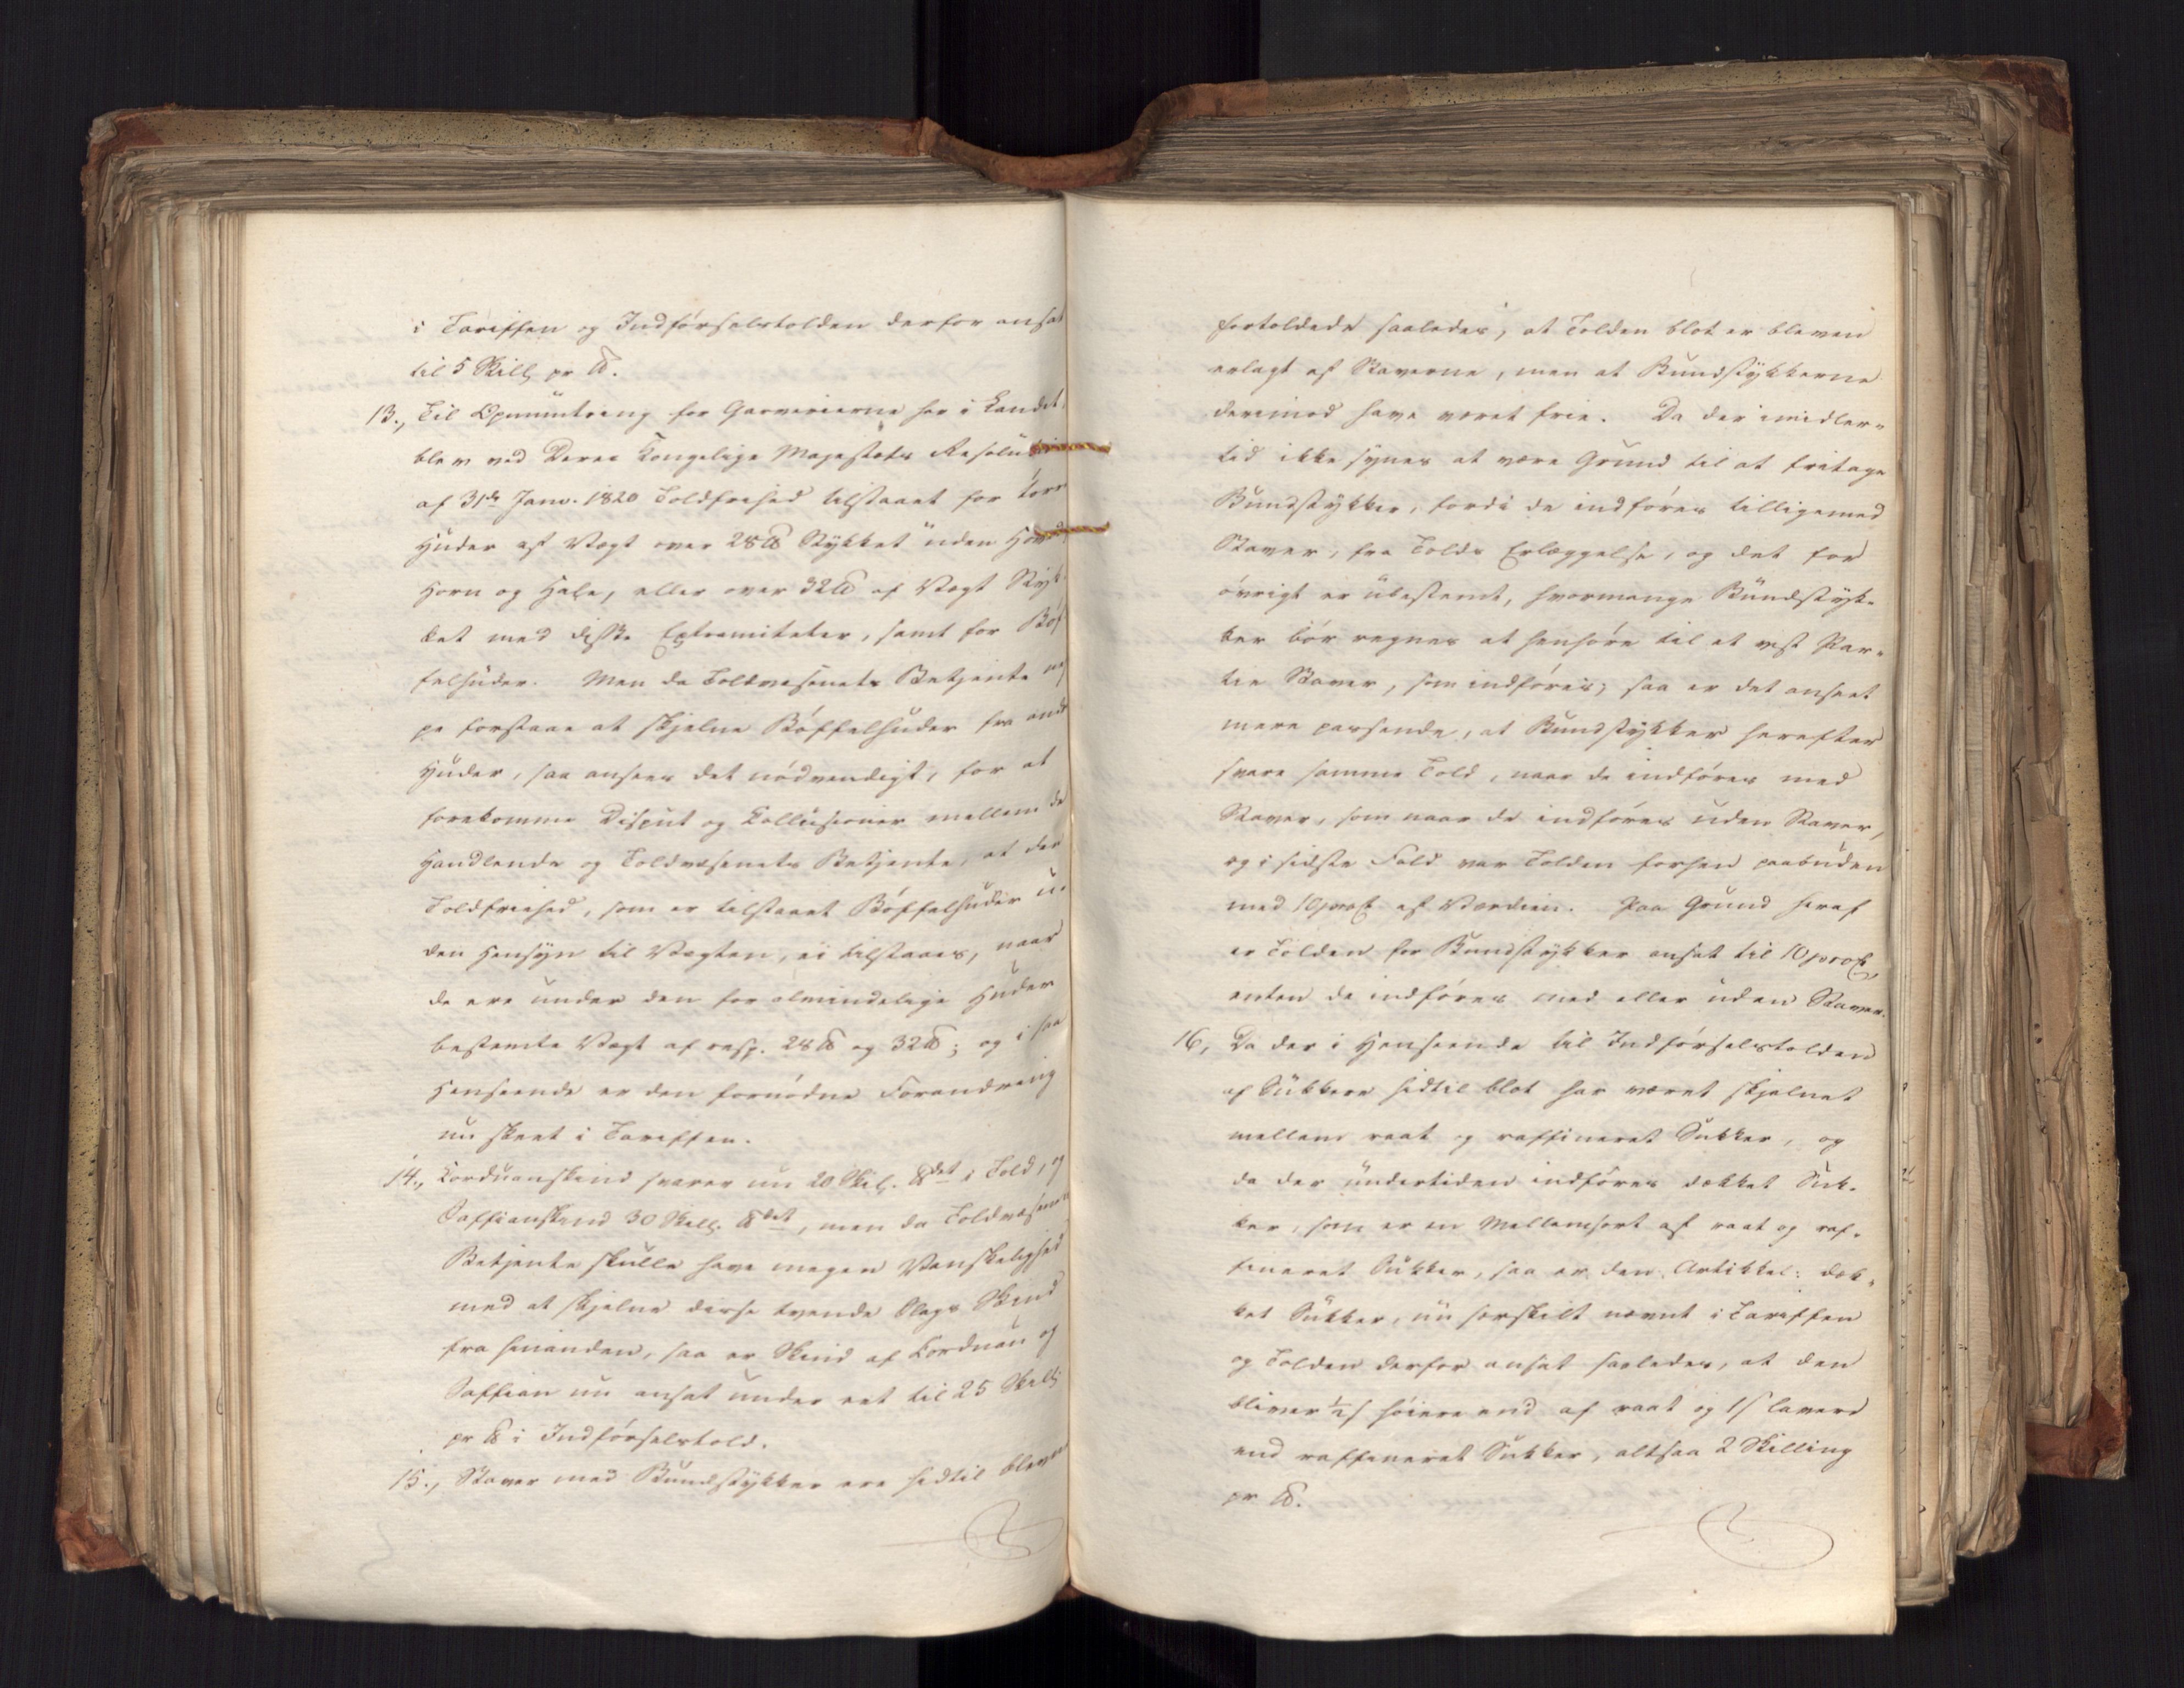 i Tariffen og Indförselstolden derfor ansat
til 5 Skill pr ℔.
13., Til Opmuntring for Garverierne her i Landet,
blev ved Deres Kongelige Majestæts Resolu
af 31de Janv. 1820 Toldfrihed tilstaaet for törre
Huder af Vægt over 28 ℔ Stykket uden Hov
Horn og Hale, eller over 32 ℔ af Vægt Styk-
ket med disse Extremiteter, samt for Böf
felhuder. Men da Toldvæsenets Betjente nep
pe forstaae at skjelne Böffelhuder fra andre
Huder, saa ansees det nödvendigt, for at
forekomme Disput og Collusioner mellem de
Handlende og Toldvæsenets Betjente, at den
Toldfriehed, som er tilstaaet Böffelhuder u-
den Hensyn til Vægten, ei tilstaaes, naar
de ere under den for almindelige Huder
bestemte Vægt af resp. 28 ℔ og 32 ℔; og i saa
Henseende er den fornödne Forandring
nu skeet i Tariffen.
14., Corduanskind svarer nu 20 Skil. ℔det i Told, og
Saffianskind 30 Skill. ℔det, men da Toldvæsenets
Betjente skulle have megen Vanskelighed
med at skjelne disse tvende Slags Skind
fra hinanden, saa er Skind af Corduan og
Saffian nu ansat under eet til 25 Skill
pr ℔ i Indförselstold.
15., Staver med Bundstykker ere hidtil blevne
fortoldede saaledes, at Tolden blot er bleven
erlagt af Staverne, men at Bundstykkerne
derimod have været frie. Da der imidler-
tid ikke synes at være Grund til at fritage
Bundstykker, fordi de indföres tilligemed
Staver, fra Tolds Erlæggelse, og det for
övrigt er ubestemt, hvormange Bundstyk-
ker bör regnes at henhöre til et vist Par-
tie Staver, som indföres; saa er det anseet
mere passende, at Bundstykker herefter
svare samme Told, naar de indföres med
Staver, som naar de indföres uden Staver,
og i sidste Fald var Tolden forhen paabuden
med 10 proCt af Værdien. Paa Grund heraf
er Tolden for Bundstykker ansat til 10 proCt,
enten de indföres med eller uden Staver.
16, Da der i Henseende til Indförselstolden
af Sukkere hidtil blot har været skjelnet
mellem raat og raffineret Sukker, og
da der undertiden indföres dækket Suk-
ker, som er en Mellemsort af raat og raf-
fineret Sukker, saa er den Artikkel: dæk-
ket Sukker, nu særskilt nævnt i Tariffen
og Tolden derfor ansat saaledes, at den
bliver ½ s höiere end af raat og 1 s lavere
end raffineret Sukker, altsaa 2 Skilling
pr ℔.